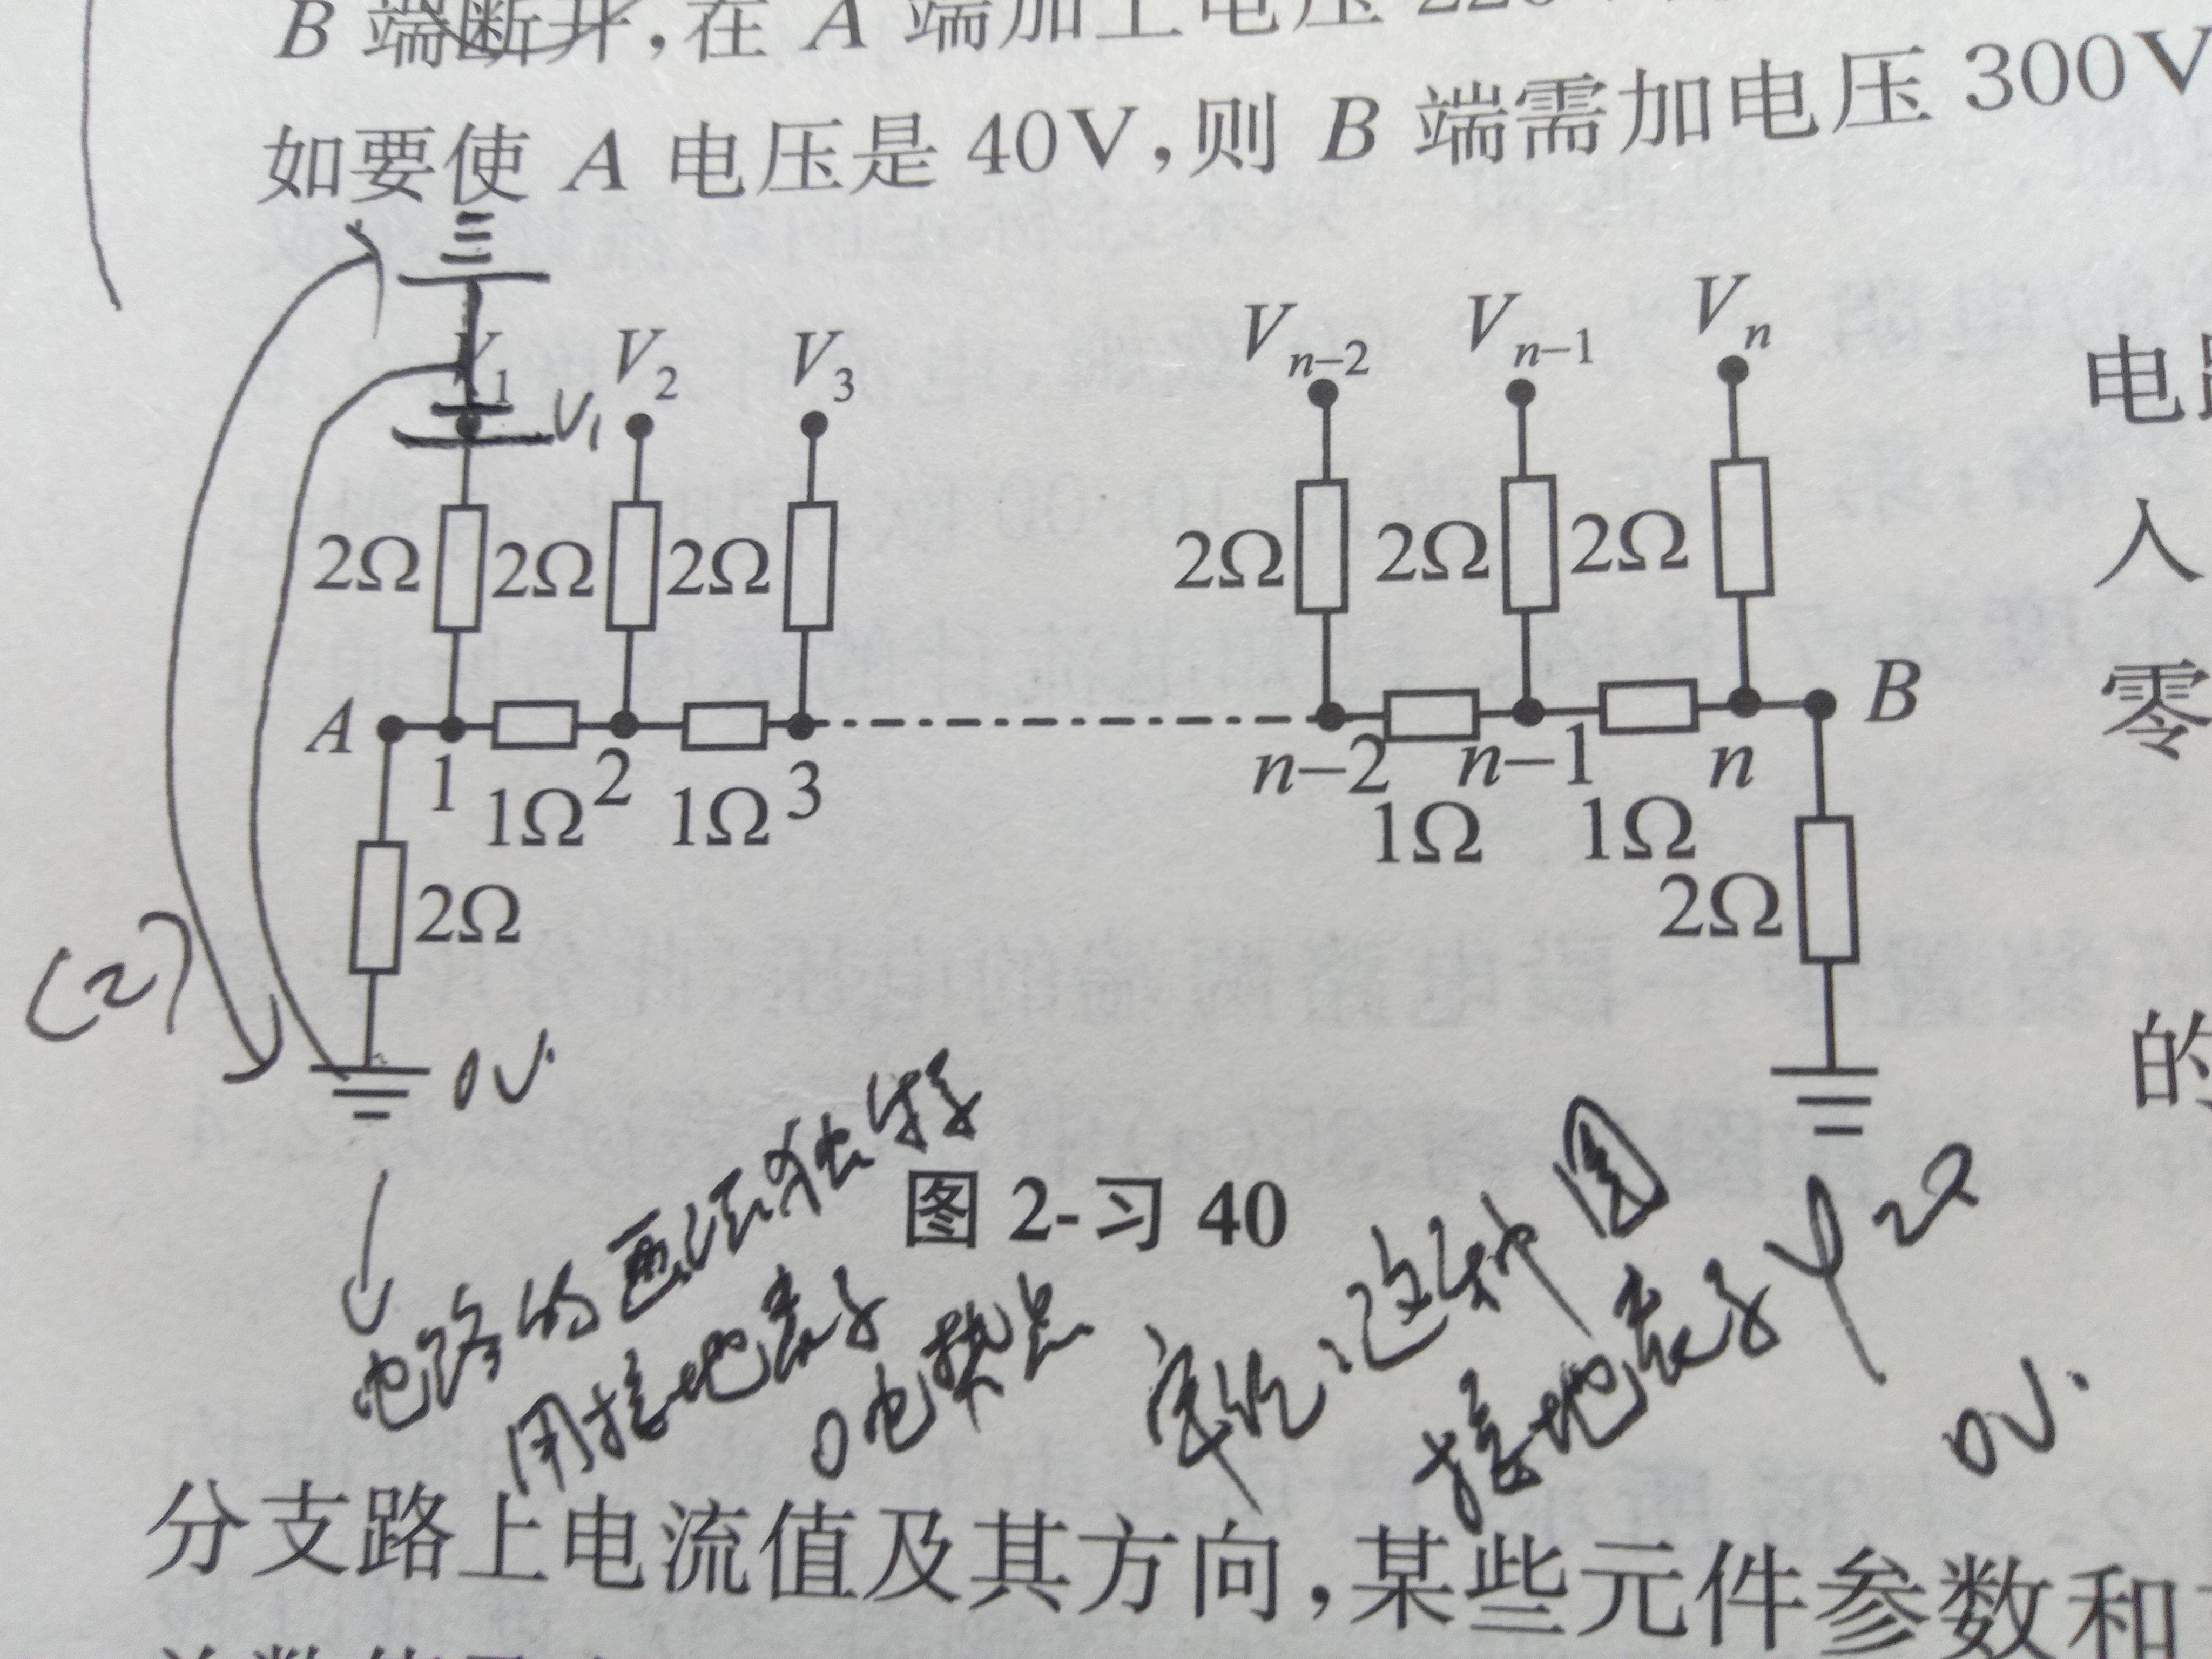 B 端断开,在 A 端加上电压 220
如要使 A 电压是 40V,则 B 端需加电压 300V
V₁ V₂ V₃ Vₙ₋₂ Vₙ₋₁ Vₙ
V₁
电
2Ω 2Ω 2Ω 2Ω 2Ω 2Ω
入
A 1 2 3 n-2 n-1 n B
零
1Ω 1Ω 1Ω 1Ω
2Ω 2Ω
(2)
0V.
的
图 2-习 40
电路的画法
用接地表示
0电势点
这种图
接地表示
φ
0V.
分支路上电流值及其方向,某些元件参数和